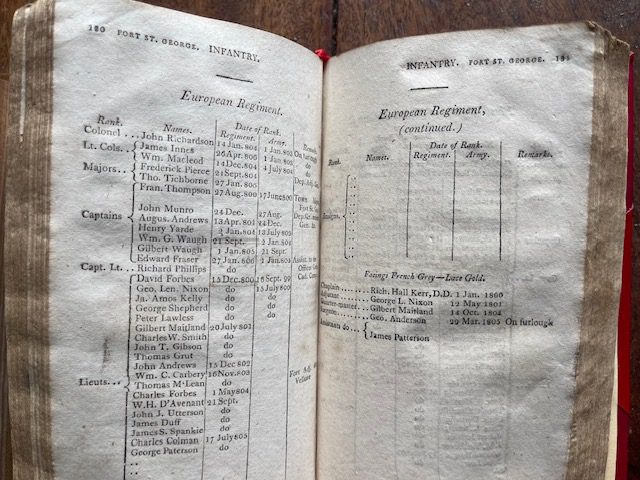 180 FORT ST. GEORGE. INFANTRY.
European Regiment.
Rank. Names. Date of Rank. Remarks
Regiment. Army.
Colonel ... John Richardson 14 Jan. 804 1 Jan. 803
Lt. Cols. James Innes 26 Apr. 800 1 Jan. 80
Wm. Macleod 14 Dec. 804 4 July 804
Majors.. Frederick Pierce 21 Sept. 804 Dep. Adj.
Tho. Tichborne 27 Jan. 805
Fran. Thompson 27 Aug. 800 17 June 800 Town
John Munro 24 Dec. 27 Aug.
Captains Augus. Andrews 13 Apr. 804
Henry Yarde 2 Jan. 13 July 803
Wm. G. Waugh 21 Sept. Jan 804
Gilbert Waugh 1 Jan. 805 21 Sept.
Edward Fraser 27 Jan.
Capt. Lt. Richard Phillips do
David Forbes 15 Dec. 800
Geo. Len. Nixon do 15 July 800
Ja. Amos Kelly do
George Shepherd do
Peter Lawless do
Gilbert Maitland 20 July 801
Charles W. Smith do
John T. Gibson do
Thomas Grut do
John Andrews 15 Dec 802
Wm. C. Carbery 16 Nov. 803 Fort Adj.
Lieuts... Thomas M'Lean do Vellore
Charles Forbes 1 May 804
W.H. D'Avenant 21 Sept.
John J. Utterson do
James Duff do
James S. Spankie do
Charles Colman 17 July 805
George Paterson do
INFANTRY. FORT ST. GEORGE. 181
European Regiment,
(continued.)
Rank. Names. Date of Rank. Remarks.
Regiment. Army.
Ensigns.
Facings French Grey—Lace Gold.
Chaplain Rich. Hall Kerr, D.D. 1 Jan. 1800
Adjutant George L. Nixon 12 May 1801
Quarter-master Gilbert Maitland 14 Oct. 1804
Surgeon Geo. Anderson 29 Mar. 1805 On furlough
do James Patterson